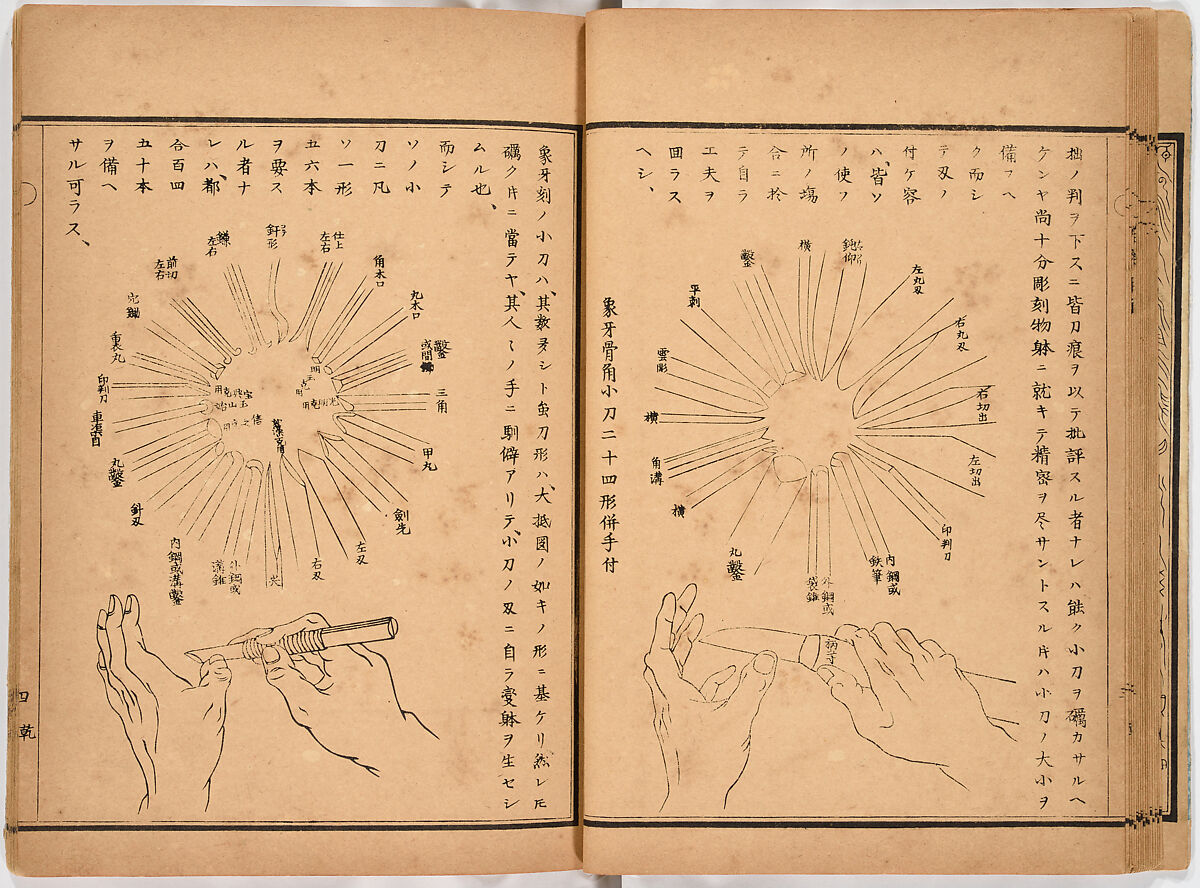 拙ノ判ヲ下スニ皆刀痕ヲ以テ批評スル者ナレハ能ク小刀ヲ礪カサルヘ
ケンヤ尚十分彫刻物躰ニ就キテ精密ヲ尽サントスル𪜈ハ小刀ノ大小ヲ
備フヘ
ク而シ
テ刄ノ
付ケ容
ハ、皆ソ
ノ使フ
所ノ塲
合ニ於
テ自ラ
工夫ヲ
囬ラス
ヘシ、
左丸刄
右丸刄
右切出
左切出
印判刀
内鋼或
鉄筆
外鋼或
袋錐
丸鑿
横
角溝
横
雲彫
平刺
鑿
横
柄二寸
象牙骨角小刀二十四形併手付
象牙刻ノ小刀ハ、其数多シト虫刀形ハ、大抵図ノ如キノ形ニ基ケリ然レ𪜈
礪クキニ當テヤ、其人〻ノ手ニ馴僻アリテ、小刀ノ刄ニ自ラ変躰ヲ生セシ
ムル也、
而シテ
ソノ小
刀ニ凡
ソ一形
五六本
ヲ要ス
ル者ナ
レハ、都
合百四
五十本
ヲ備ヘ
サル可ラス、
仕上
左右
角木口
丸木口
鑿
或間
三角
甲丸
剣先
左刄
右刄
外鋼或
溝錐
内鋼或溝鑿
針刄
丸鑿
印判刀
重丸
前切
左右
鎌
左右
釬形
四
乾